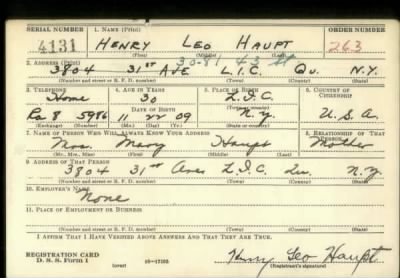 SERIAL NUMBER 1. NAME (Print) ORDER NUMBER
4131 HENRY LEO HAUPT 263
(First) (Middle) (Last)
30-81 43 St
2. ADDRESS (Print)
3804 31ST AVE L.I.C. QU. N.Y.
(Number and street or R. F. D. number) (Town) (County) (State)
3. TELEPHONE 4. AGE IN YEARS 5. PLACE OF BIRTH 6. COUNTRY OF CITIZENSHIP
Home 30 L.I.C.
DATE OF BIRTH
Ra 8 5986 11 22 09 N.Y. U.S.A.
(Exchange) (Number) (Mo.) (Day) (Yr.) (State or country)
7. NAME OF PERSON WHO WILL ALWAYS KNOW YOUR ADDRESS 8. RELATIONSHIP OF THAT PERSON
Mrs. Mary Haupt Mother
(Mr., Mrs., Miss) (First) (Middle) (Last)
9. ADDRESS OF THAT PERSON
3804 31st Ave L.I.C. Qu. N.Y.
(Number and street or R. F. D. number) (Town) (County) (State)
10. EMPLOYER'S NAME
None
11. PLACE OF EMPLOYMENT OR BUSINESS
(Number and street or R. F. D. number) (Town) (County) (State)
I AFFIRM THAT I HAVE VERIFIED ABOVE ANSWERS AND THAT THEY ARE TRUE.
REGISTRATION CARD
D. S. S. Form 1 (over) 16-17105
Henry Leo Haupt
(Registrant's signature)